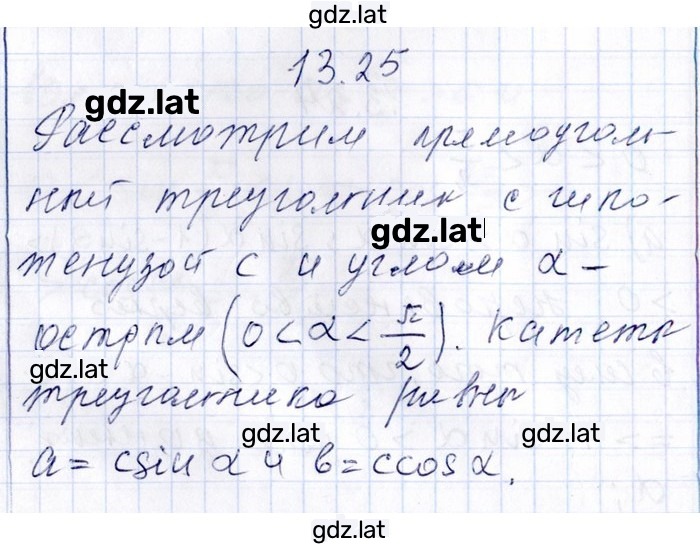 gdz.lat
13.25
gdz.lat
Рассмотрим прямоуголь-
ный треугольник с гипо-
gdz.lat
тенузой c и углом α -
острым (0 < α < π/2). Катеты
gdz.lat
треугольника равны
gdz.lat gdz.lat
a = c sin α и b = c cos α.
gdz.lat